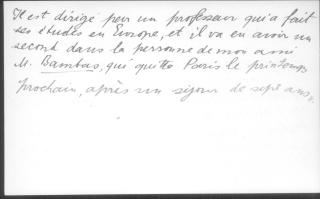 Il est dirigé par un professeur qui a fait
ses études en Europe, et il va en avoir un
second dans la personne de mon ami
M. Bambas, qui quitte Paris le printemps
prochain, après un séjour de sept ans.